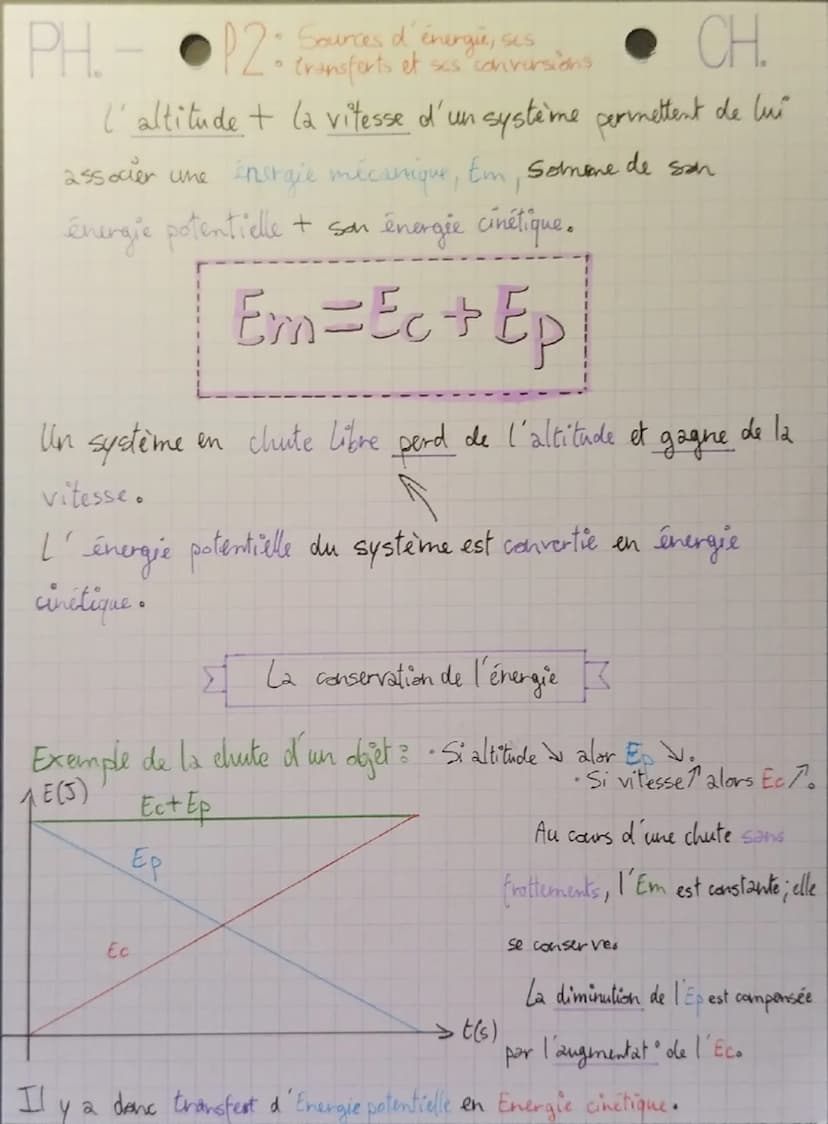 PH. - P2: Sources d'énergie, ses CH.
transferts et ses conversions
L'altitude + la vitesse d'un système permettent de lui
associer une énergie mécanique, Em, somme de son
énergie potentielle + son énergie cinétique.
Em = Ec + Ep
Un système en chute libre perd de l'altitude et gagne de la
vitesse.
L'énergie potentielle du système est convertie en énergie
cinétique.
La conservation de l'énergie
Exemple de la chute d'un objet : · Si altitude ↘ alor Ep ↘.
· Si vitesse ↗ alors Ec ↗.
E(J)
Ec+Ep
Ep
Ec
t(s)
Au cours d'une chute sans
frottements, l'Em est constante ; elle
se conserve.
La diminution de l'Ep est compensée
par l'augmentat° de l'Ec.
Il y a donc transfert d'Energie potentielle en Energie cinétique.